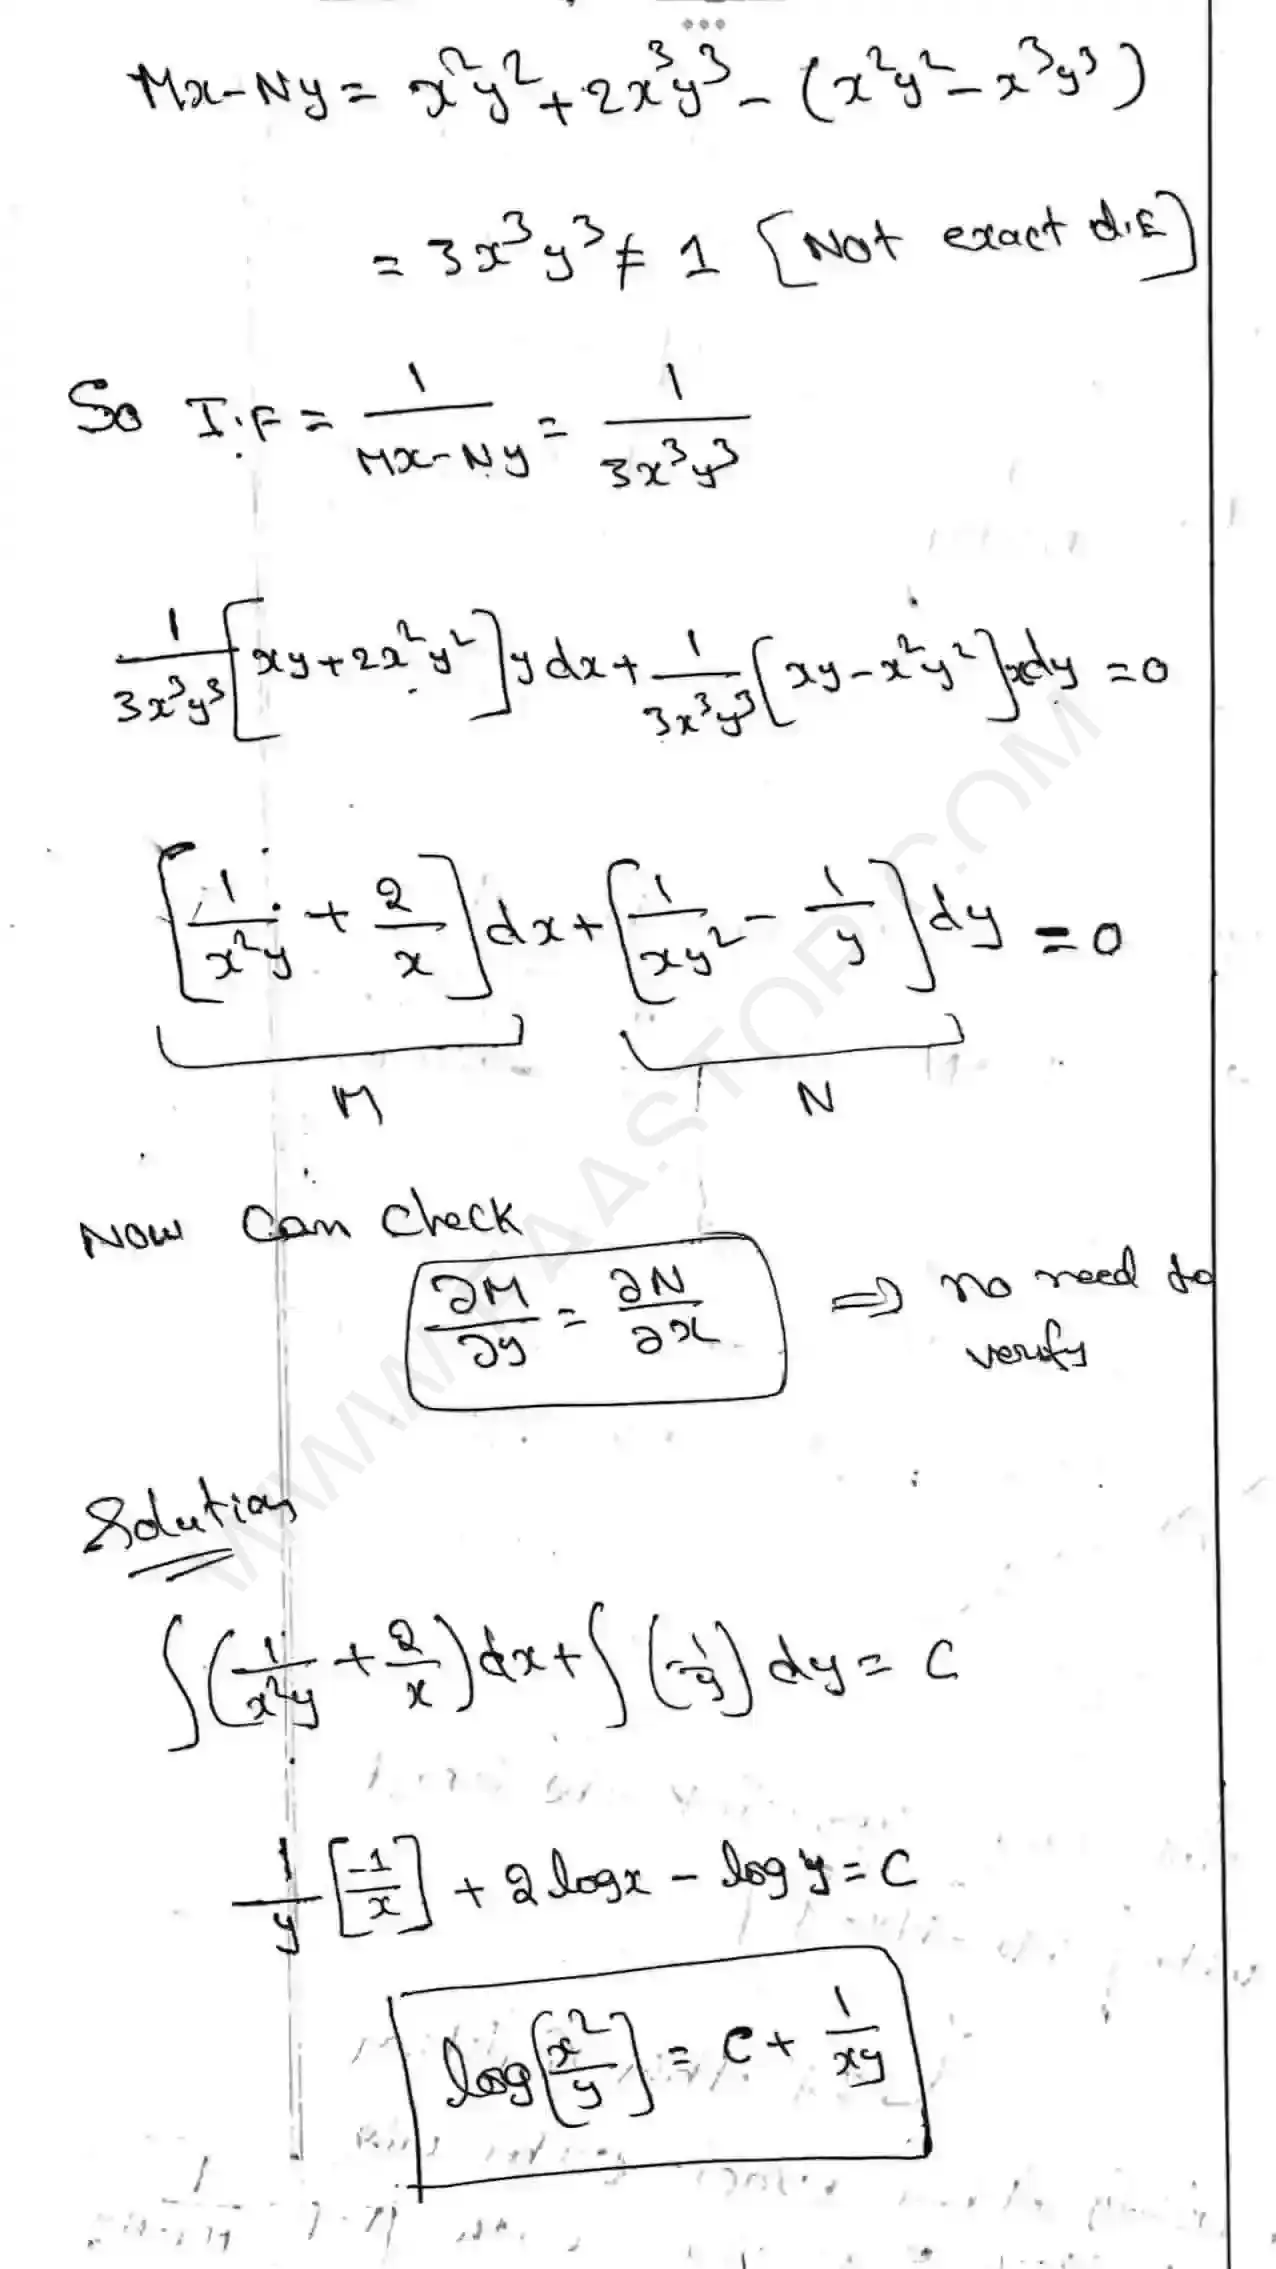 Mx-Ny = x²y²+2x³y³-(x²y²-x³y³)
= 3x³y³ ≠ 1 [Not exact d.E]
So I.F = 1/(Mx-Ny) = 1/(3x³y³)
1/(3x³y³) [xy+2x²y²] y dx + 1/(3x³y³) [xy-x²y²] x dy = 0
[1/(x²y) + 2/x] dx + [1/(xy²) - 1/y] dy = 0
M N
Now can check
∂M/∂y = ∂N/∂x ⇒ no need to
verify
Solution
∫(1/(x²y) + 2/x) dx + ∫(-1/y) dy = C
1/y [-1/x] + 2 log x - log y = C
log[x²/y] = C + 1/(xy)